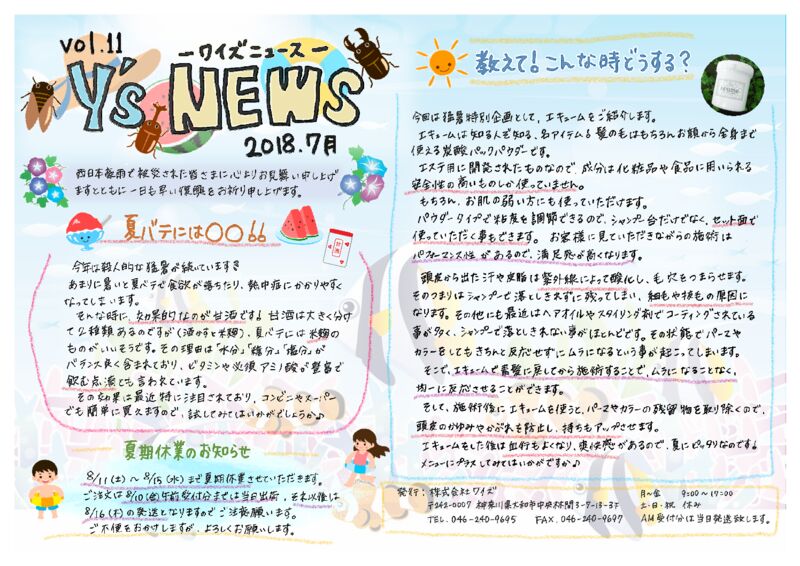 vol.11
ーワイズニュースー
Y's NEWS
2018.7月
西日本豪雨で被災された皆さまに心よりお見舞い申し上げ
ますとともに一日も早い復興をお祈り申し上げます。
夏バテには〇〇
今年は殺人的な猛暑が続いています
あまりに暑いと夏バテで食欲が落ちたり、熱中症にかかりやすく
なってしまいます。
そんな時に、効果的なのが甘酒です。甘酒は大きく分け
て2種類あるのですが(酒かすと米麹)、夏バテには米麹の
ものがいいそうです。その理由は「水分」「糖分」「塩分」が
バランス良く含まれており、ビタミンや必須アミノ酸が豊富で
飲む点滴とも言われています。
その効果は最近特に注目されており、コンビニやスーパー
でも簡単に買えますので、試してみてはいかがでしょうか♪
夏期休業のお知らせ
8/11(土)〜8/15(水)まで夏期休業させていただきます。
ご注文は8/10(金)午前受付分までは当日出荷、それ以後は
8/16(木)の発送となりますのでご注意願います。
ご不便をおかけしますが、よろしくお願いします。
教えて!こんな時どうする?
今回は猛暑特別企画として、エキュームをご紹介します。
エキュームは知る人ぞ知る、名アイテム!髪の毛はもちろんお顔から全身まで
使える炭酸パックパウダーです。
エステ用に開発されたものなので、成分は化粧品や食品に用いられる
安全性の高いものしか使っていません。
もちろん、お肌の弱い方にも使っていただけます。
パウダータイプで粘度を調節できるので、シャンプー台だけでなく、セット面で
使っていただく事もできます。お客様に見ていただきながらの施術は
パフォーマンス性があるので、満足度が高くなります。
頭皮から出た汗や皮脂は紫外線によって酸化し、毛穴をつまらせます。
そのつまりはシャンプーで落としきれずに残ってしまい、細毛や抜毛の原因に
なります。その他にも最近はヘアオイルやスタイリング剤でコーティングされている
事が多く、シャンプーで落としきれない事がほとんどです。その状態でパーマや
カラーをしてもきちんと反応せずにムラになるという事が起こってしまいます。
そこで、エキュームで素髪に戻してから施術することで、ムラになることなく、
均一に反応させることができます。
そして、施術後にエキュームを使うと、パーマやカラーの残留物を取り除くので、
頭皮のかゆみやかぶれを防止し、持ちもアップさせます。
エキュームをした後は血行もよくなり、爽快感があるので、夏にピッタリなのです!
メニューにプラスしてみてはいかがですか♪
発行: 株式会社ワイズ
〒242-0007 神奈川県大和市中央林間3-7-13-3F
TEL. 046-240-9695 FAX. 046-240-9697
月〜金 9:00〜17:00
土・日・祝 休み
AM受付分は当日発送致します。